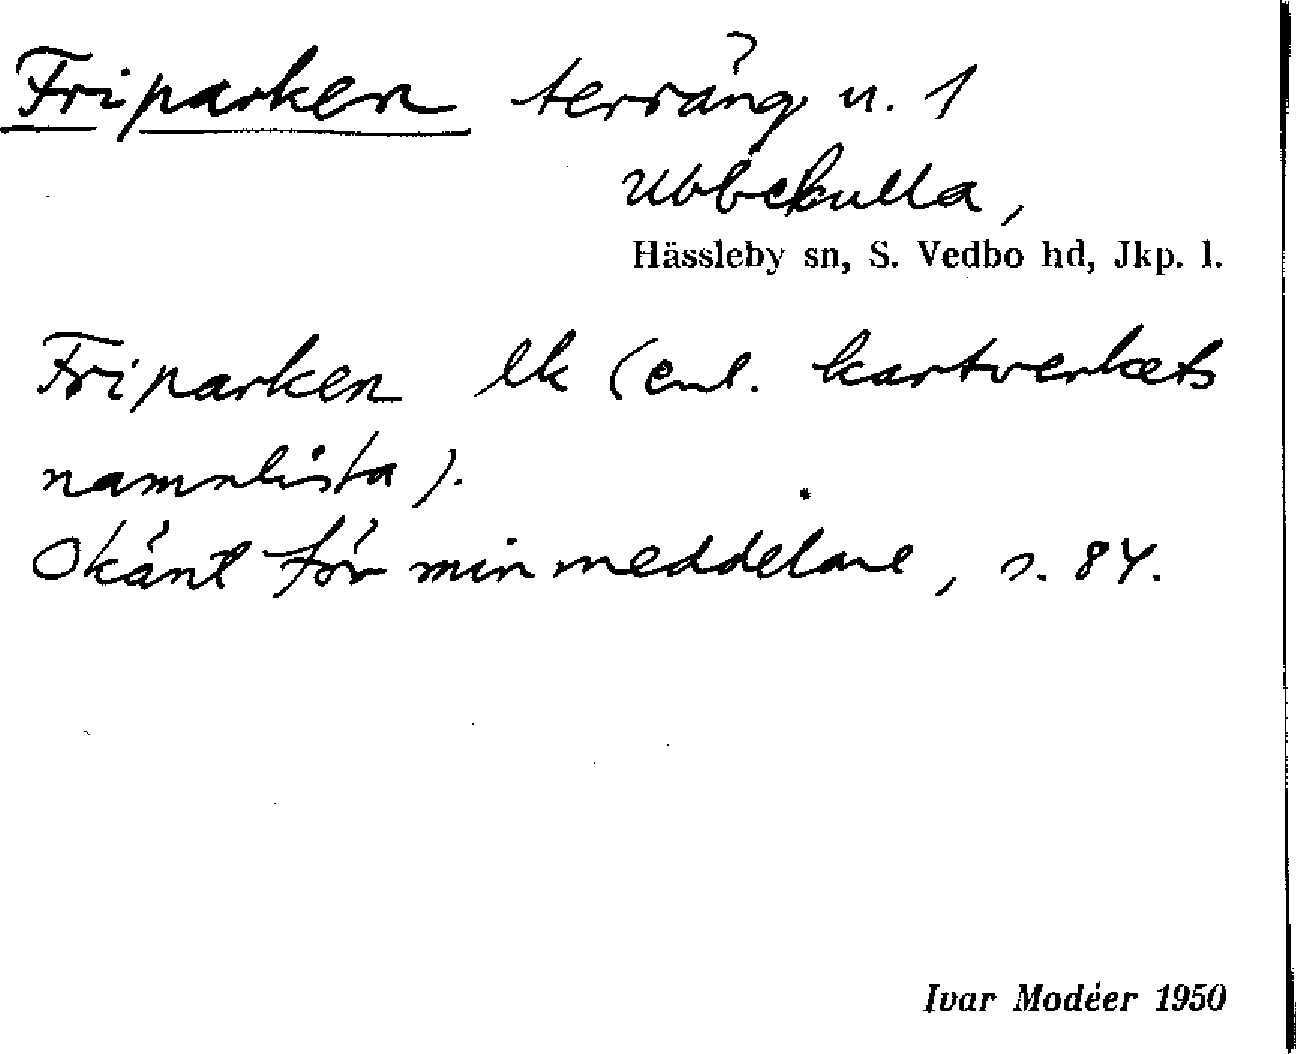 Friparken terräng? u. 1
Ubbekulla,
Hässleby sn, S. Vedbo hd, Jkp. l.
Friparken lk (enl. kartverkets
namnlista).
Okänt för min meddelare, s. 84.
Ivar Modéer 1950